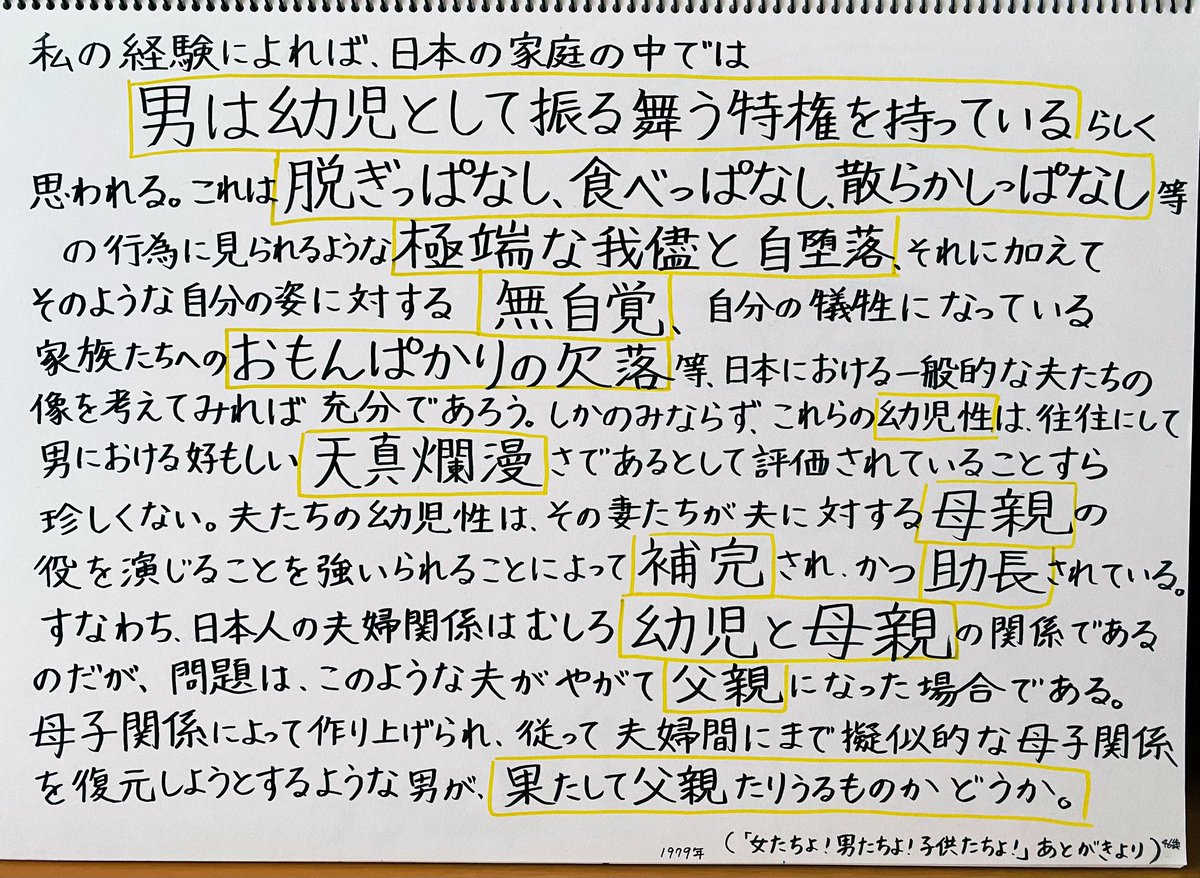 私の経験によれば、日本の家庭の中では
男は幼児として振る舞う特権を持っているらしく
思われる。これは脱ぎっぱなし、食べっぱなし、散らかしっぱなし等
の行為に見られるような極端な我儘と自堕落、それに加えて
そのような自分の姿に対する無自覚、自分の犠牲になっている
家族たちへのおもんぱかりの欠落等、日本における一般的な夫たちの
像を考えてみれば充分であろう。しかのみならず、これらの幼児性は、往往にして
男における好もしい天真爛漫さであるとして評価されていることすら
珍しくない。夫たちの幼児性は、その妻たちが夫に対する母親の
役を演じることを強いられることによって補完され、かつ助長されている。
すなわち、日本人の夫婦関係はむしろ幼児と母親の関係である
のだが、問題は、このような夫がやがて父親になった場合である。
母子関係によって作り上げられ、従って夫婦間にまで擬似的な母子関係
を復元しようとするような男が、果たして父親たりうるものかどうか。
1979年（「女たちよ！男たちよ！子供たちよ！」あとがきより）46歳